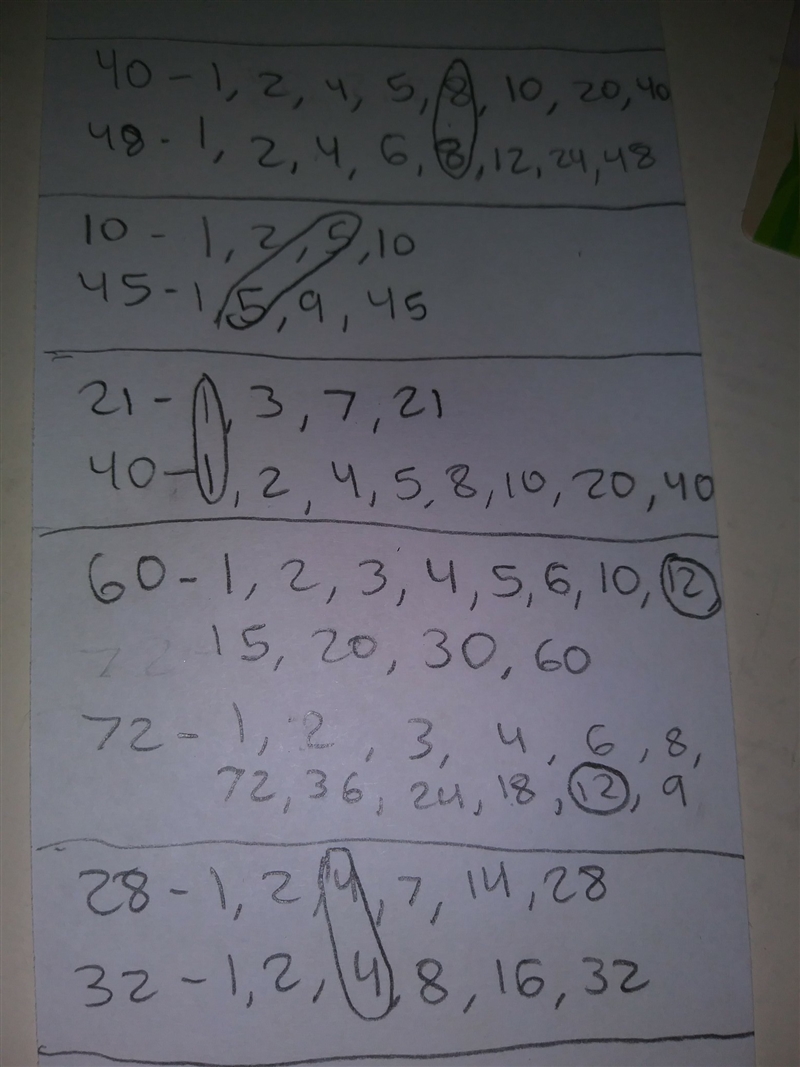 40 - 1, 2, 4, 5, 8, 10, 20, 40
48 - 1, 2, 4, 6, 8, 12, 24, 48
10 - 1, 2, 5, 10
45 - 1 5, 9, 45
21 - 1, 3, 7, 21
40 - 1, 2, 4, 5, 8, 10, 20, 40
60 - 1, 2, 3, 4, 5, 6, 10, 12
15, 20, 30, 60
72 - 1, 2, 3, 4, 6, 8,
72, 36, 24, 18, 12, 9
28 - 1, 2, 4, 7, 14, 28
32 - 1, 2, 4, 8, 16, 32